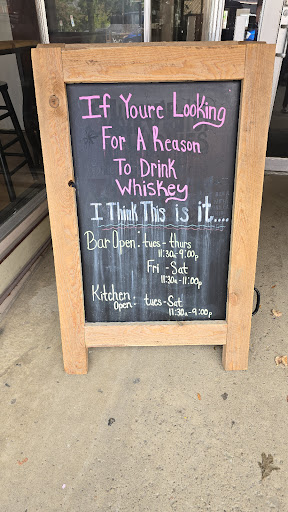 If Youre Looking
For A Reason
To Drink
Whiskey
I Think This is it....
Bar Open: tues - thurs
11:30a-9:00p
Fri - Sat
11:30a-11:00p
Kitchen
Open: tues-Sat
11:30a-9:00p